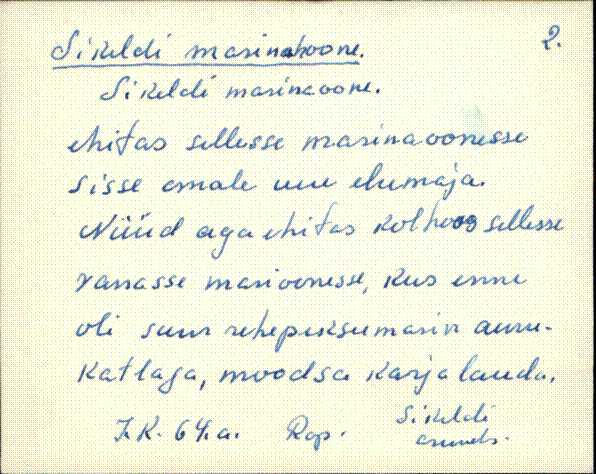 Sikeldi masinahoone. 2.
Sikeldi masinaoone.
ehitas sellesse masinaoonesse
sisse omale uue elumaja.
Nüüd aga ehitas kolhoos sellesse
vanasse masioonesse, kus enne
oli suur rehepeksumasin auru-
katlaga, moodsa karjalauda.
J.K. 64.a. Rap. Sikeldi
asunds.